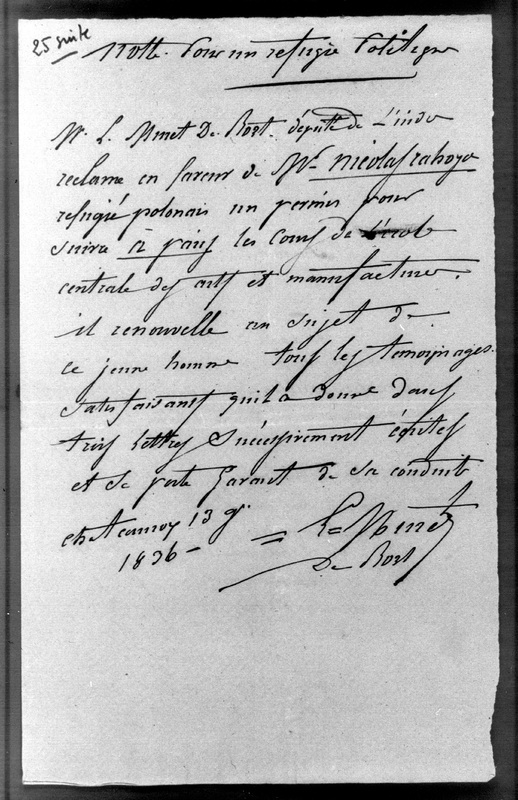 25 suite
Notte pour un refugié Politique
Mr. L. Minet De Bort. député de L'indre
reclame en faveur de Mr Nicolas rahoza
refugié polonais un permis pour
suivre à paris les cours de L'école
centrale des arts et manufacture.
il renouvelle au sujet de
ce jeune homme tous les temoignages
satisfaisants qu'il a donné dans
trois lettres succéssivement écrites
et se porte garant de sa conduite
13
1836 = L Minet
De Bort